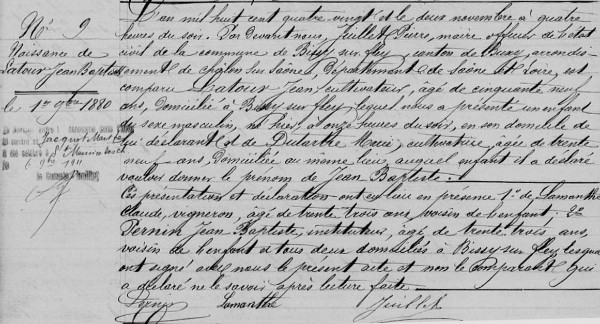 N° 9
Naissance de
Latour Jean Baptiste
le 1er 9bre 1880
L'an mil huit cent quatre vingt et le deux novembre à quatre
heures du soir. Par Devant nous, Juillet Pierre, maire, officier de l'état
civil de la commune de Bissy sur fley, canton de Buxy, arrondis-
sement de châlon sur Saône, Département de Saône et Loire, est
comparu Latour Jean cultivateur, âgé de cinquante neuf
ans, Domicilié à Bissy sur fley lequel nous a présenté un enfant
du sexe masculin, né hier, à onze heures du soir, en son domicile de
lui déclarant et de Dulartre cultivatrice, âgée de trente
neuf ans, Domiciliée au même lieu, auquel enfant il a déclaré
vouloir donner le prénom de Jean Baptiste.
Ces présentation et déclaration ont eu lieu en présence 1° de Lamanthe
Claude, vigneron, âgé de trente trois ans, voisin de l'enfant. 2°
Pernin Jean Baptiste, instituteur, âgé de trente trois ans,
voisin de l'enfant et tous deux domiciliés à Bissy sur fley lesquels
ont signé avec nous le présent acte et non le comparant qui
a déclaré ne le savoir après lecture faite.
Pernin Lamanthe Juillet